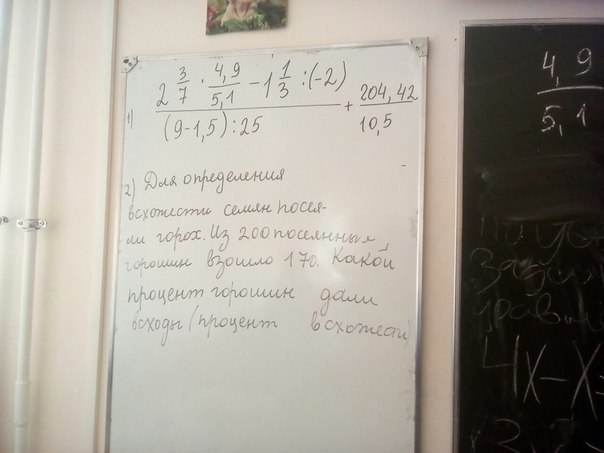 1) 2 3/7 · 4,9/5,1 − 1 1/3 : (−2)
(9−1,5) : 25
+ 204,42/10,5
2) Для определения
всхожести семян посея-
ли горох. Из 200 посеянных
горошин взошло 170. Какой
процент горошин дали
всходы (процент всхожести)
4,9
5,1
4x−x